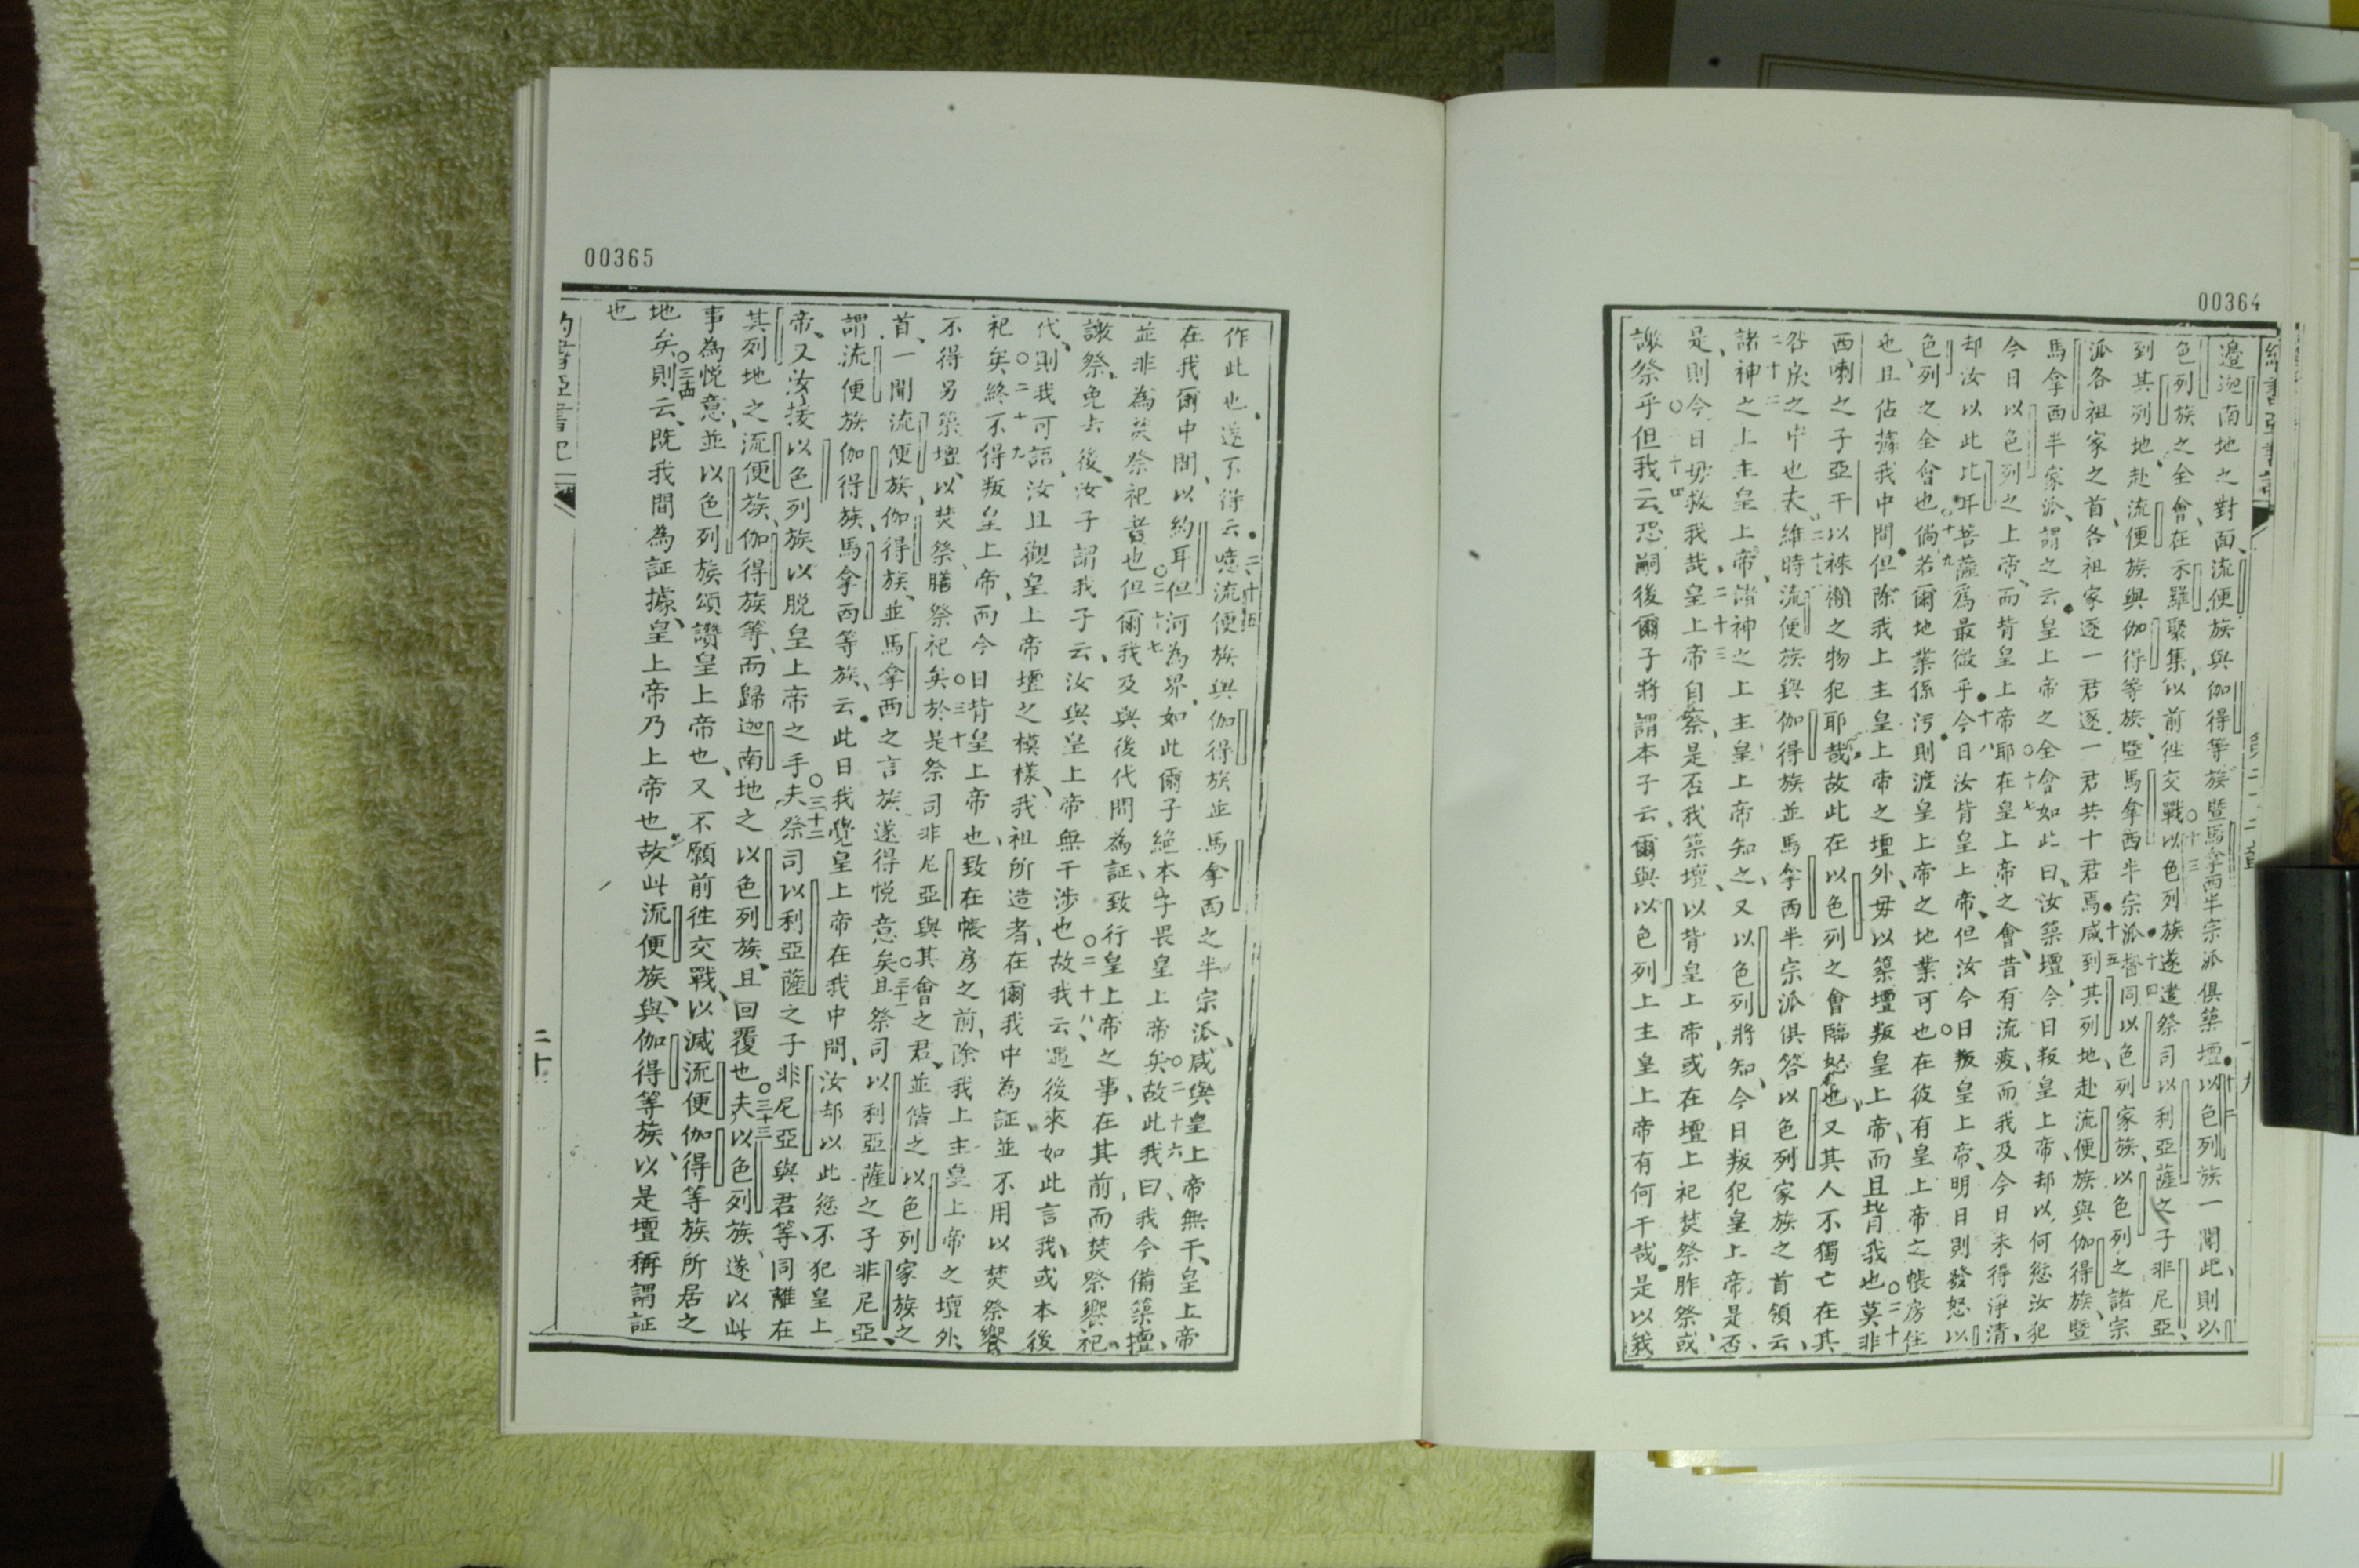 00364
邉迦南地之對面、流便族與伽得等族暨馬拿西半宗派俱築壇。十二以色列族一聞此、則以
色列族之全會、在示羅聚集、以前徃交戰。十三以色列族遂遣祭司以利亞薩之子非尼亞、
到其列地、赴流便族與伽得等族、暨馬拿西半宗派。十四督同以色列家族、以色列之諸宗
派各祖家之首、各祖家逐一君逐一君共十君焉。十五咸到其列地、赴流便族與伽得族、暨
馬拿西半家派、謂之云。皇上帝之全會如此曰、汝築壇、今日叛皇上帝、却以何愆汝犯
今日以色列之上帝、而背皇上帝耶。十七在皇上帝之會、昔有流疫、而我及今日未得淨清、
却汝以此比耳菩薩爲最微乎。十八今日汝背皇上帝、但汝今日叛皇上帝、明日則發怒以
色列之全會也。十九倘若爾地業係污、則渡皇上帝之地業可也、在彼有皇上帝之帳房住
也、且佔據我中間。但除我上主皇上帝之壇外、毋以築壇叛皇上帝、而且背我也。二十莫非
西喇之子亞干以祩𥛲之物犯耶哉、故此在以色列之會臨怒也、又其人不獨亡在其
咎戾之中也。二十一夫維時流便族與伽得族並馬拿西半宗派俱答以色列家族之首領云、
二十二諸神之上主皇上帝、諸神之上主皇上帝知之、又以色列將知、今日叛犯皇上帝是否、
是、則今日毋救我哉、二十三皇上帝自察、是否我築壇、以背皇上帝、或在壇上祀焚祭胙祭、或
謝祭乎。二十四但我云、恐嗣後爾子將謂本子云、爾與以色列上主皇上帝有何干哉。是以我
00365
作此也、遂不得云。二十五噫流便族與伽得族並馬拿西之半宗派、咸與皇上帝無干、皇上帝
在我爾中間、以約耳但河為界、如此爾子絶本子畏皇上帝矣。二十六故此我曰、我今備築壇、
並非為焚祭祀者也。二十七但爾我及與後代間為証、致行皇上帝之事、在其前、而焚祭饗祀、
謝祭、免去後、汝子謂我子云、汝與皇上帝無干涉也。二十八故我云、遇後來如此言我、或本後
代、則我可語、汝且觀皇上帝壇之模樣、我祖所造者、在爾我中為証、並不用以焚祭饗
祀矣。二十九終不得叛皇上帝、而今日背皇上帝也、致在帳房之前、除我上主皇上帝之壇外、
不得另築壇、以焚祭膳祭祀矣。三十於是祭司非尼亞與其會之君、並偕之以色列家族之
首、一聞流便族、伽得族、並馬拿西之言族遂得悅意矣。三十一且祭司以利亞薩之子非尼亞、
謂流便族伽得族、馬拿西等族、云。此日我覺皇上帝在我中間、汝却以此愆不犯皇上
帝、又汝接以色列族以脱皇上帝之手。三十二夫祭司以利亞薩之子非尼亞與君等、同離在
其列地之流便族、伽得族等、而歸迦南地之以色列族、且回覆也。三十三夫以色列族遂以此
事為悅意、並以色列族頌讚皇上帝也、又不願前徃交戰、以滅流便伽得等族所居之
地矣。三十四則云、既我間為証據、皇上帝乃上帝也。故此流便族、與伽得等族、以是壇稱謂証
也
二十